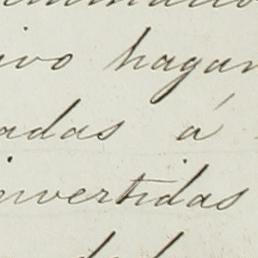 ivo hagan
adas á
nvertidas